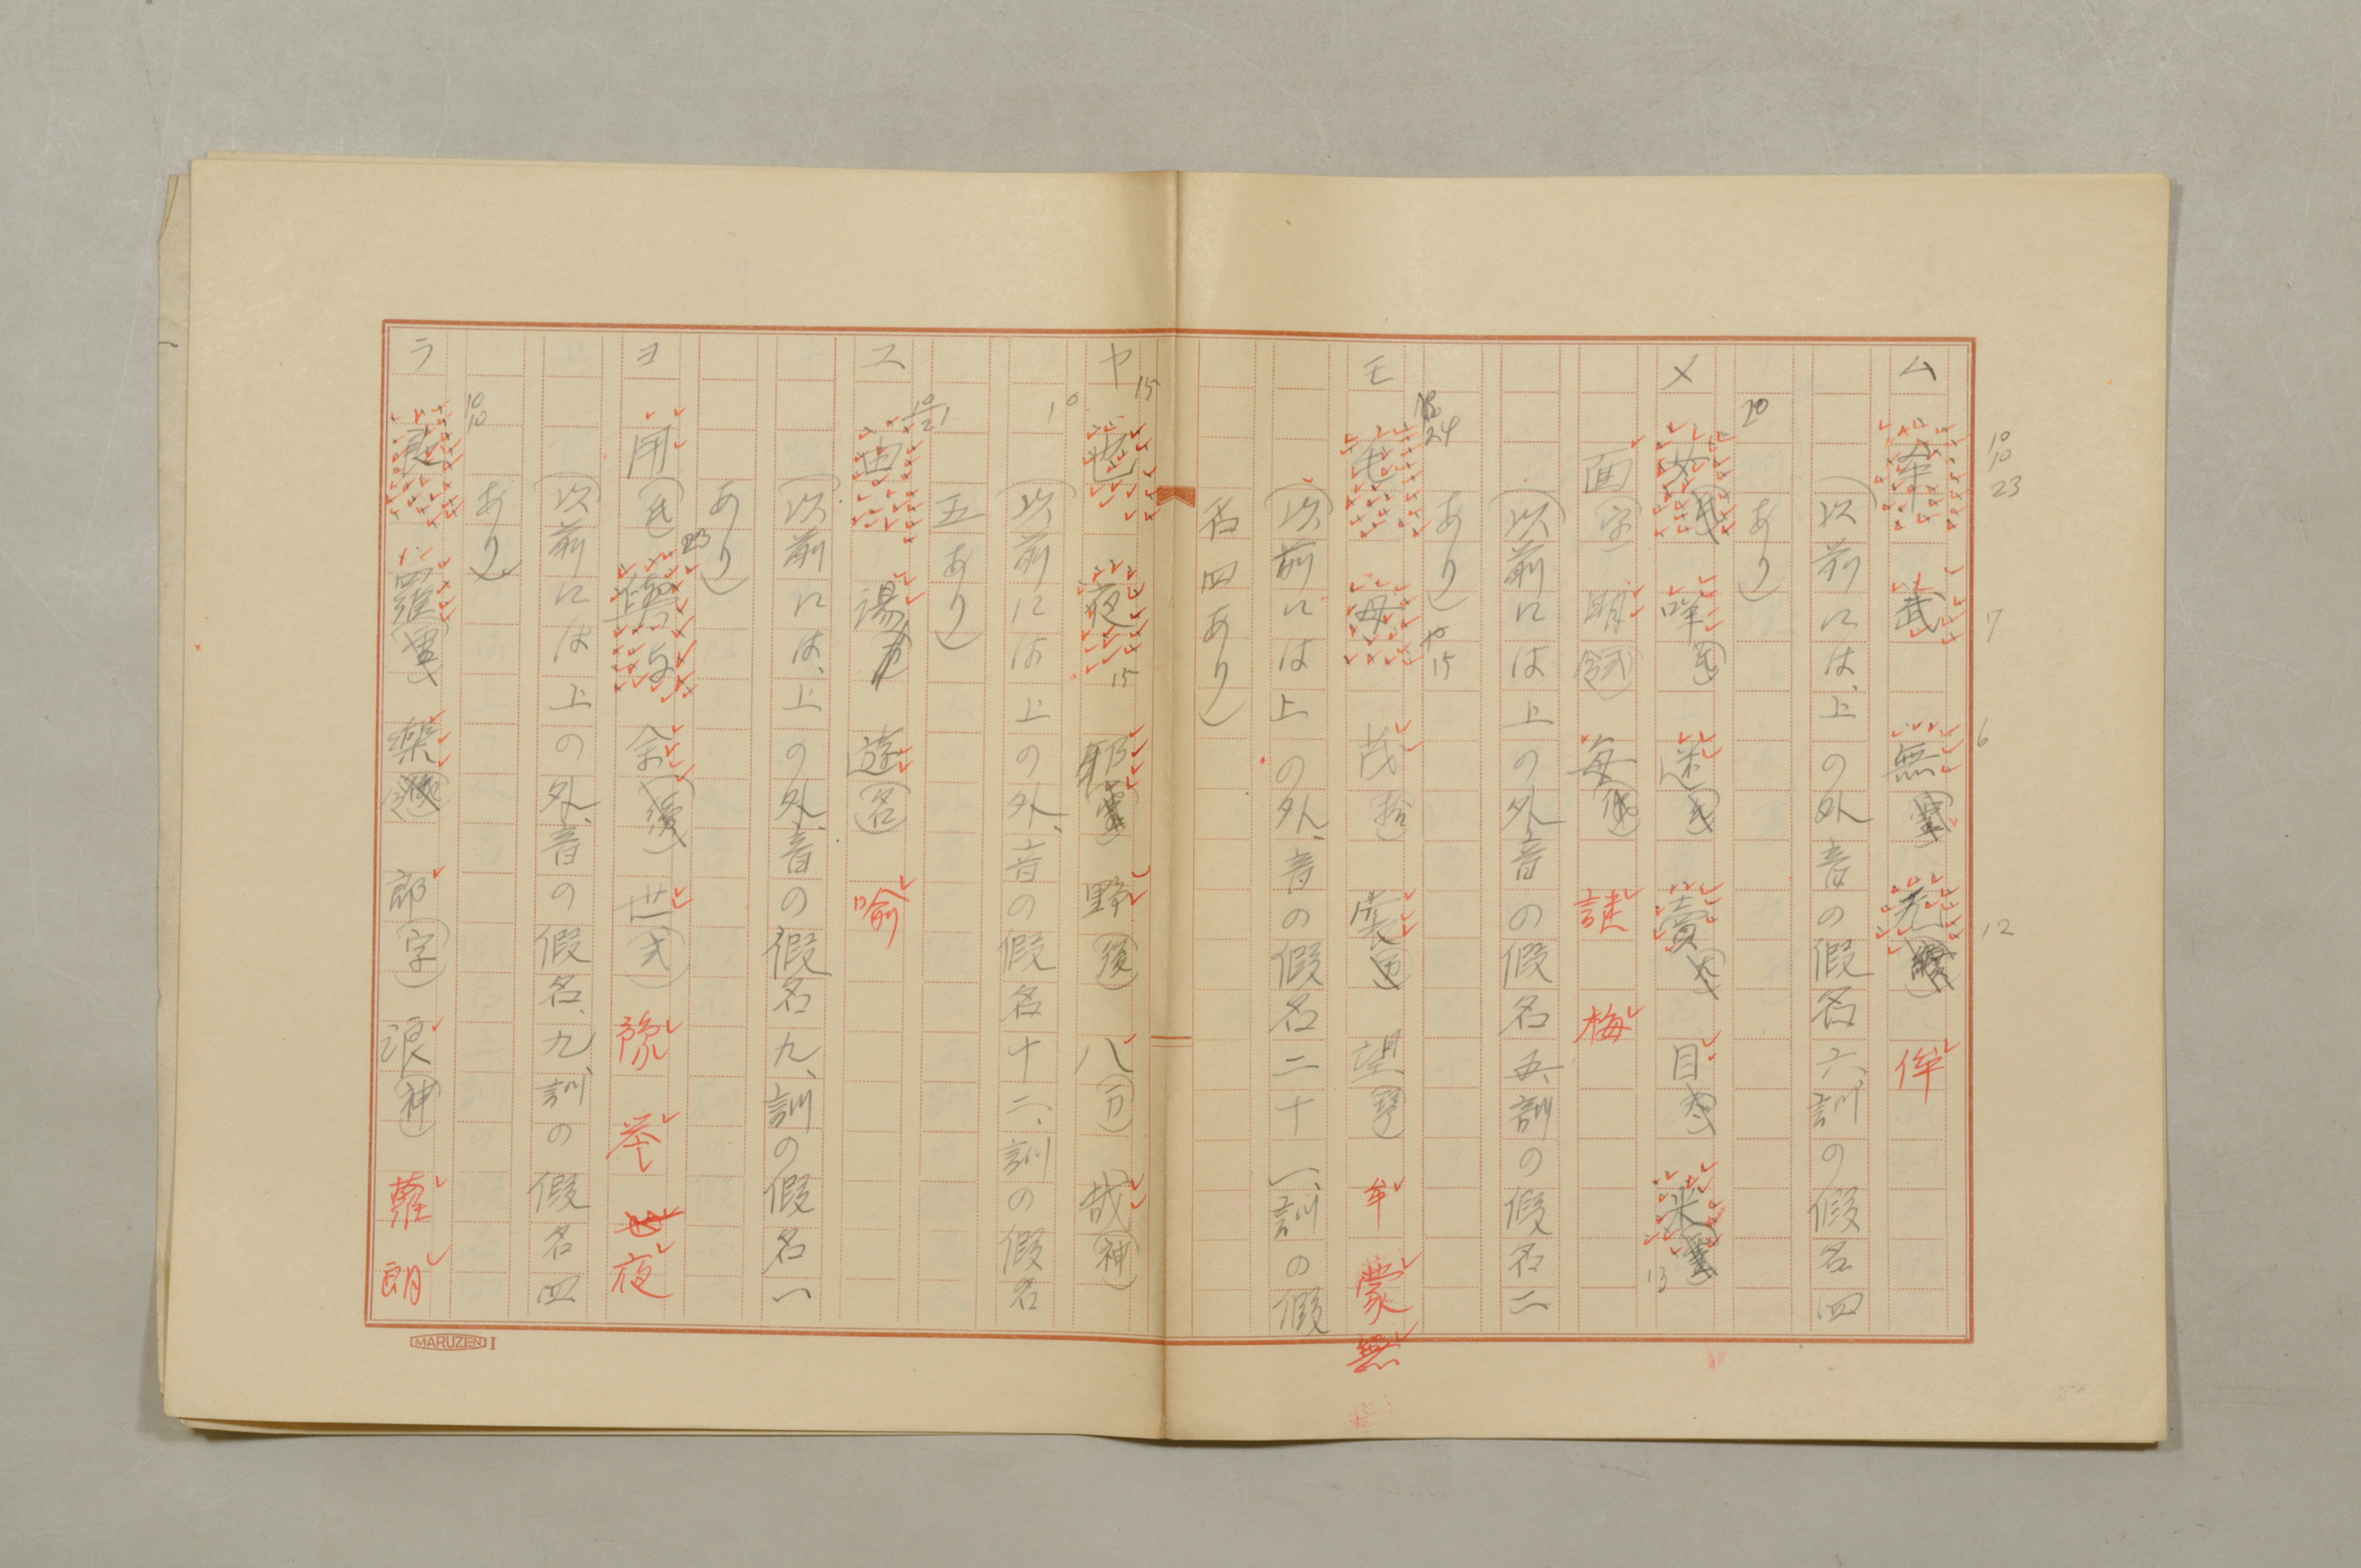 ム 牟 武 無 无 侔
(以前には、上の外音の假名六、訓の假名四
あり)
メ 女 咩 迷 賣 目 米
面(字) 明 每 謎 梅
(以前には上の外音の假名五、訓の假名二
あり)
モ 毛 母 茂(拾) 裳 望 牟 蒙 無
(以前には上の外、音の假名二十一、訓の假
名四あり)
ヤ 也 夜 耶 野(後) 八(万) 哉(神)
(以前には上の外、音の假名十二、訓の假名
五あり)
ユ 由 湯 遊(名) 喻
(以前には、上の外、音の假名九、訓の假名一
あり)
ヨ 用 與 与 余 世(式) 豫 夜
(以前には上の外、音の假名、九、訓の假名四
あり)
ラ 良 羅 樂 郎(字) 浪(神) 蘿 朗
MARUZEN I